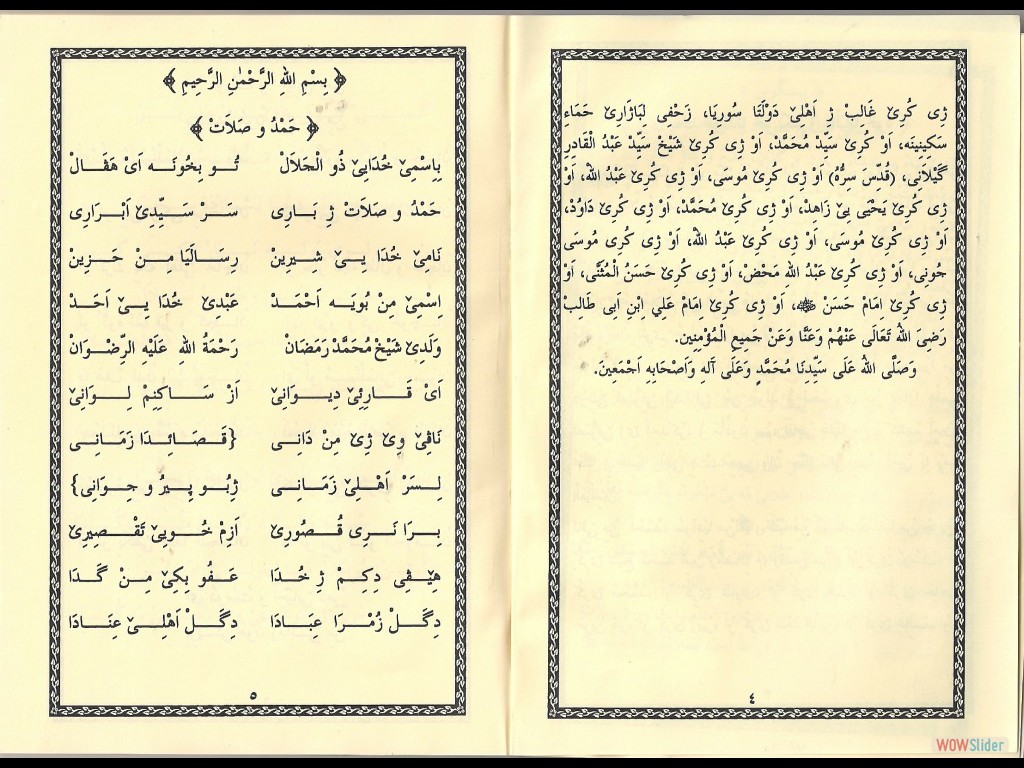 ژِی کُرِیْ غَالِبْ ژِ اَهْلِیْ دَوْلَتَا سُورِیَا، زَحْفِی لِبَاژَارِیْ حَمَاءِ
سَکِینِینَه، اَوْ کُرِیْ سَیِّدْ مُحَمَّدْ، اَوْ ژِی کُرِیْ شَیْخْ سَیِّدْ عَبْدُ الْقَادِرِ
گَیْلَانِی، (قُدِّسَ سِرُّهُ) اَوْ ژِی کُرِیْ مُوسَی، اَوْ ژِی کُرِیْ عَبْدُ اللّٰه، اَوْ
ژِی کُرِیْ یَحْیَی یِیْ زَاهِدْ، اَوْ ژِی کُرِیْ مُحَمَّدْ، اَوْ ژِی کُرِیْ دَاوُدْ،
اَوْ ژِی کُرِیْ مُوسَی، اَوْ ژِی کُرِیْ عَبْدُ اللّٰه، اَوْ ژِی کُرِی مُوسَی
جُونِی، اَوْ ژِی کُرِیْ عَبْدُ اللّٰهِ مَحَضْ، اَوْ ژِی کُرِیْ حَسَنُ الْمُثَنَّی، اَوْ
ژِی کُرِیْ اِمَامْ حَسَنْ، اَوْ ژِی کُرِیْ اِمَامْ عَلِي اِبْنِ اَبِی طَالِبْ
رَضِیَ اللّٰهُ تَعَالَی عَنْهُمْ وَعَنَّا وَعَنْ جَمِیعِ الْمُؤْمِنِین.
وَصَلَّی اللّٰهُ عَلَی سَیِّدِنَا مُحَمَّدٍ وَعَلَی آلِهِ وَاَصْحَابِهِ اَجْمَعِینَ.
٤
﴿ بِسْمِ اللّٰهِ الرَّحْمٰنِ الرَّحِیمِ ﴾
﴿ حَمْدُ و صَلَاتْ ﴾
بِاِسْمِیْ خُدَایِیْ ذُو الْجَلَالْ تُو بِخُونَه اَیْ هَڤَالْ
حَمْدُ و صَلَاتْ ژِ بَارِی سَرْ سَیِّدِیْ اَبْرَارِی
نَامِیْ خُدَا یِیْ شِیرِینْ رِسَالَیَا مِنْ حَزِینْ
اِسْمِیْ مِنْ بُویَه اَحْمَدْ عَبْدِیْ خُدَا یِیْ اَحَدْ
وَلَدِیْ شَیْخْ مُحَمَّدْ رَمَضَان رَحْمَةُ اللّٰهِ عَلَیْهِ الرِّضْوَانْ
اَیْ قَارِئِیْ دِیوَانِیْ اَزْ سَاکِنِمْ لِوَانِیْ
نَاڤِیْ وِیْ ژِیْ مِنْ دَانِی {قَصَائِدَا زَمَانِی
لِسَرْ اَهْلِیْ زَمَانِی ژِبُو پِیرُ و جِوَانِی}
بِرَا نَرِی قُصُورِیْ اَزِمْ خُویِیْ تَقْصِیرِیْ
هِیْڤِی دِکِمْ ژِ خُدَا عَفُو بِکِیْ مِنْ گَدَا
دِگَلْ زُمْرَا عِبَادَا دِگَلْ اَهْلِیْ عِنَادَا
٥
WOWSlider